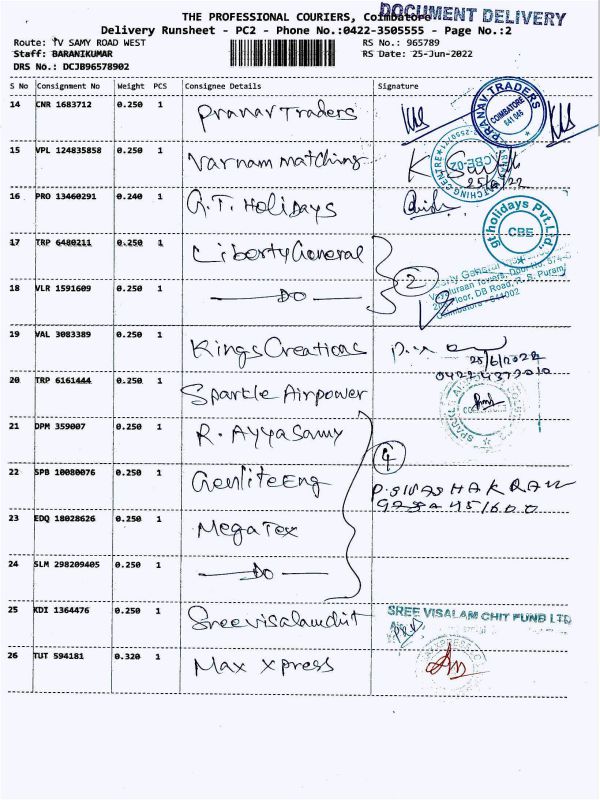 THE PROFESSIONAL COURIERS, Coimbatore
DOCUMENT DELIVERY
Delivery Runsheet - PC2 - Phone No.:0422-3505555 - Page No.:2
Route: TV SAMY ROAD WEST
RS No.: 965789
Staff: BARANIKUMAR
RS Date: 25-Jun-2022
DRS No.: DCJB96578902
S No Consignment No Weight PCS Consignee Details Signature
14 CNR 1683712 0.250 1 Pranav Traders
PRANAV TRADERS COIMBATORE 641 046
15 VPL 124835858 0.250 1 Varnam Matching
MATCHING CENTRE CBE-02
25/6/22
16 PRO 13460291 0.240 1 G.T. Holidays
gt holidays Pvt.Ltd., CBE
17 TRP 6480211 0.250 1 Liberty General
2
18 VLR 1591609 0.250 1 DO
Liberty General
DB Road, R. S. Puram
Coimbatore - 641002
19 VAL 3083389 0.250 1 Kings Creations
25/6/2022
20 TRP 6161444 0.250 1 Sparkle Airpower
21 DPM 359007 0.250 1 R. Ayyasamy
4
22 SPB 10080076 0.250 1 Genlite Eng
23 EDQ 18028626 0.250 1 Mega Tex
24 SLM 298209405 0.250 1 DO
25 KDI 1364476 0.250 1 Sreevisalamchit
SREE VISALAM CHIT FUND LTD
26 TUT 594181 0.320 1 Max Xpress